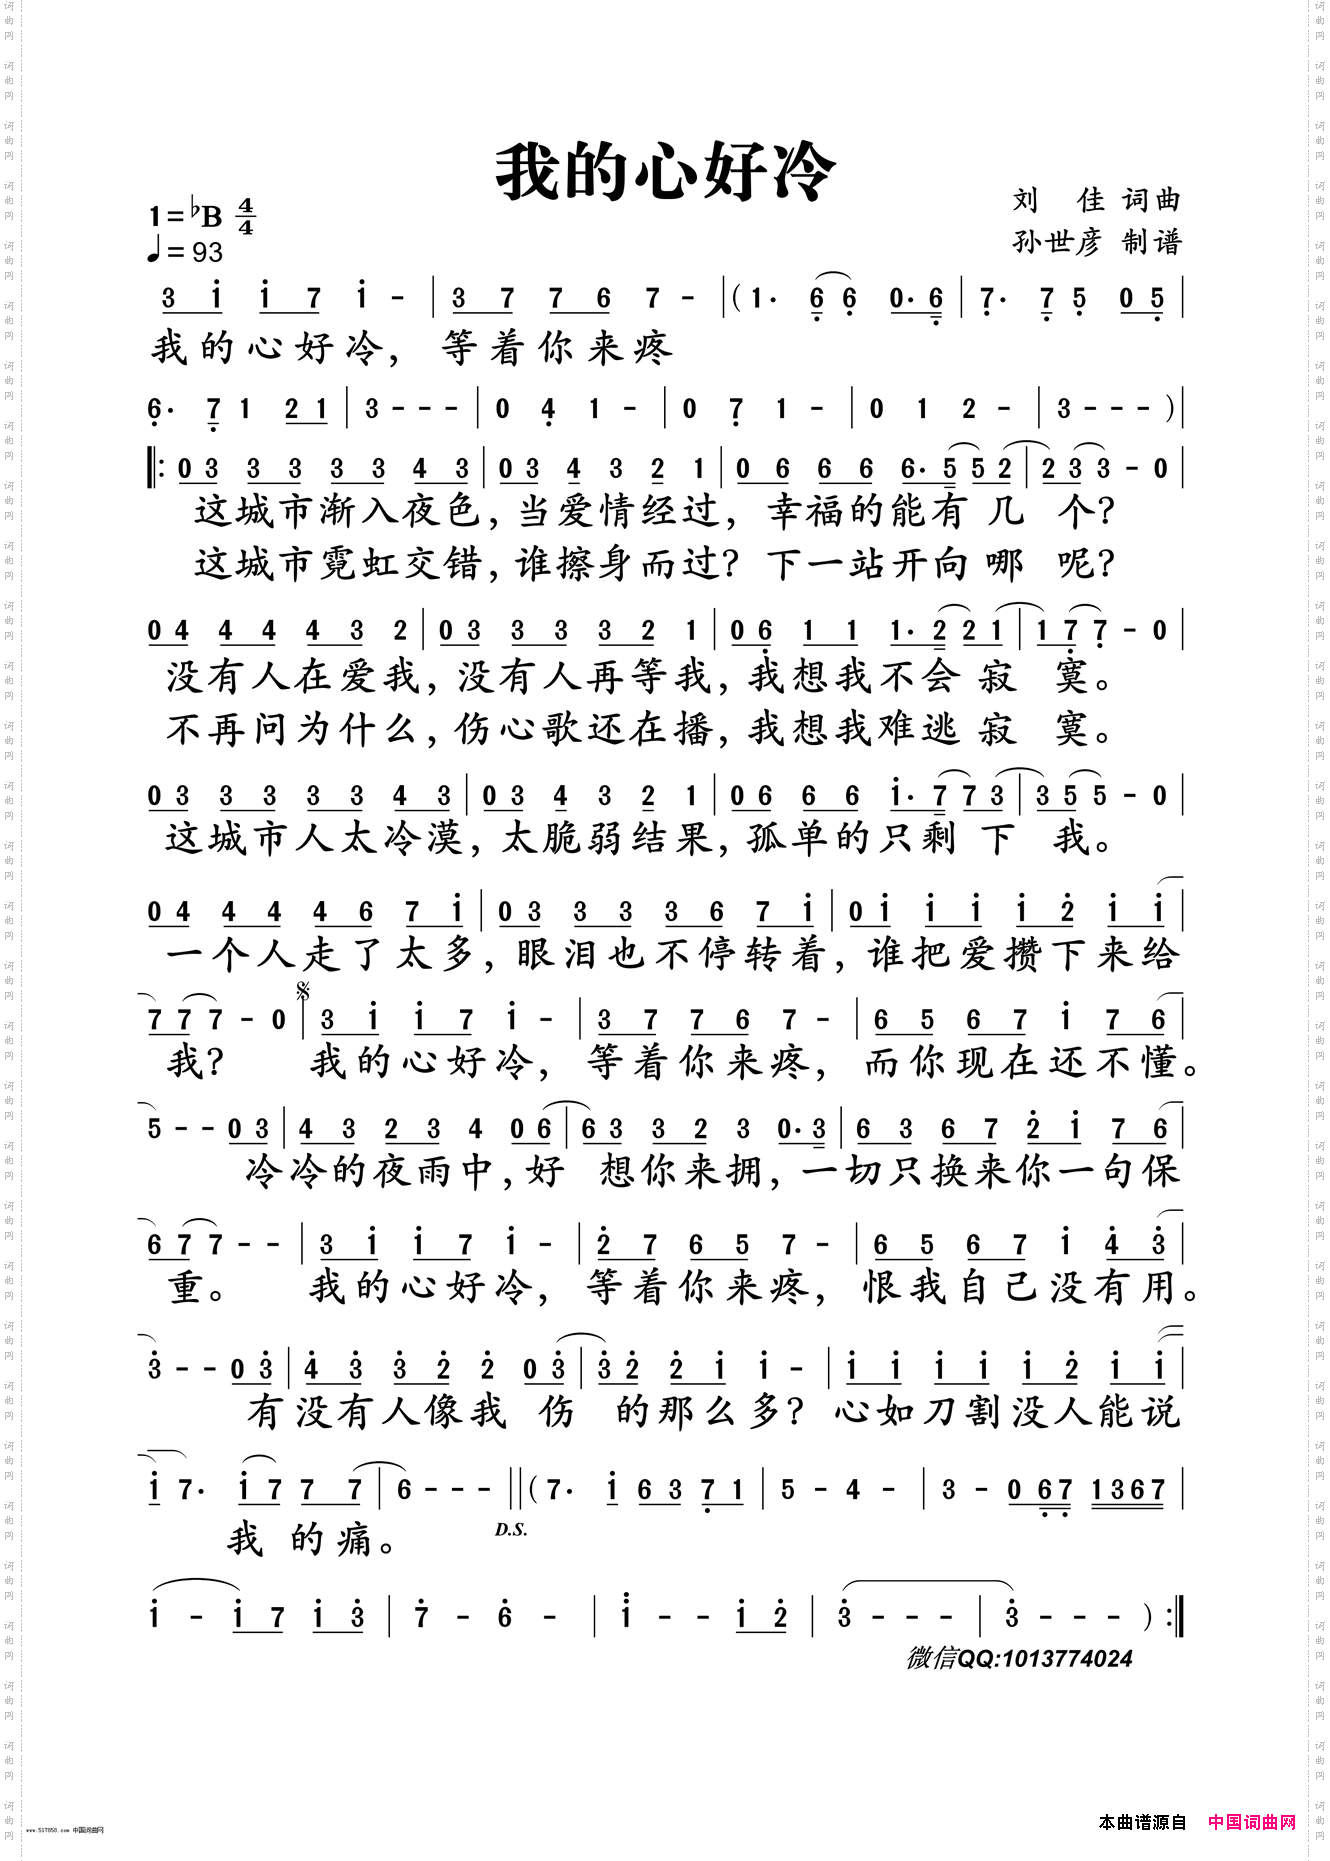 我的心好冷
1=♭B 4/4
♩=93
刘 佳 词曲
孙世彦 制谱
3 1̇ 1̇ 7 1̇ - | 3 7 7 6 7 - |(1· 6̣ 6̣ 0· 6̣ | 7̣· 7̣ 5̣ 0 5̣ |
我的心好冷, 等着你来疼
6̣· 7̣ 1 2 1 | 3 - - - | 0 4̣ 1 - | 0 7̣ 1 - | 0 1 2 - | 3 - - - )|
‖: 0 3 3 3 3 3 4 3 | 0 3 4 3 2 1 | 0 6 6 6 6· 5 5 2 | 2 3 3 - 0 |
这城市渐入夜色, 当爱情经过, 幸福的能有几个?
这城市霓虹交错, 谁擦身而过? 下一站开向哪呢?
0 4 4 4 4 3 2 | 0 3 3 3 3 2 1 | 0 6̣ 1 1 1· 2 2 1 | 1 7̣ 7̣ - 0 |
没有人在爱我, 没有人再等我, 我想我不会寂寞。
不再问为什么, 伤心歌还在播, 我想我难逃寂寞。
0 3 3 3 3 3 4 3 | 0 3 4 3 2 1 | 0 6 6 6 1̇· 7 7 3 | 3 5 5 - 0 |
这城市人太冷漠, 太脆弱结果, 孤单的只剩下我。
0 4 4 4 4 6 7 1̇ | 0 3 3 3 3 6 7 1̇ | 0 1̇ 1̇ 1̇ 1̇ 2̇ 1̇ 1̇ |
一个人走了太多, 眼泪也不停转着, 谁把爱攒下来给
7 7 7 - 0 | 𝄋 3 1̇ 1̇ 7 1̇ - | 3 7 7 6 7 - | 6 5 6 7 1̇ 7 6 |
我? 我的心好冷, 等着你来疼, 而你现在还不懂。
5 - - 0 3 | 4 3 2 3 4 0 6 | 6 3 3 2 3 0· 3 | 6 3 6 7 2̇ 1̇ 7 6 |
冷冷的夜雨中, 好想你来拥, 一切只换来你一句保
6 7 7 - - | 3 1̇ 1̇ 7 1̇ - | 2̇ 7 6 5 7 - | 6 5 6 7 1̇ 4̇ 3̇ |
重。 我的心好冷, 等着你来疼, 恨我自己没有用。
3̇ - - 0 3̇ | 4̇ 3̇ 3̇ 2̇ 2̇ 0 3̇ | 3̇ 2̇ 2̇ 1̇ 1̇ - | 1̇ 1̇ 1̇ 1̇ 1̇ 2̇ 1̇ 1̇ |
有没有人像我伤的那么多? 心如刀割没人能说
1̇ 7· 1̇ 7 7 7 | 6 - - - ‖(7· 1̇ 6 3 7̣ 1 | 5 - 4 - | 3 - 0 6̣ 7̣ 1 3 6 7 |
我的痛。 D.S.
1̇ - 1̇ 7 1̇ 3̇ | 7̇ - 6̇ - | 1̈ - - 1̇ 2̇ | 3̇ - - - | 3̇ - - - ) :‖
微信QQ:1013774024
本曲谱源自 中国词曲网
www.517050.com 中国词曲网